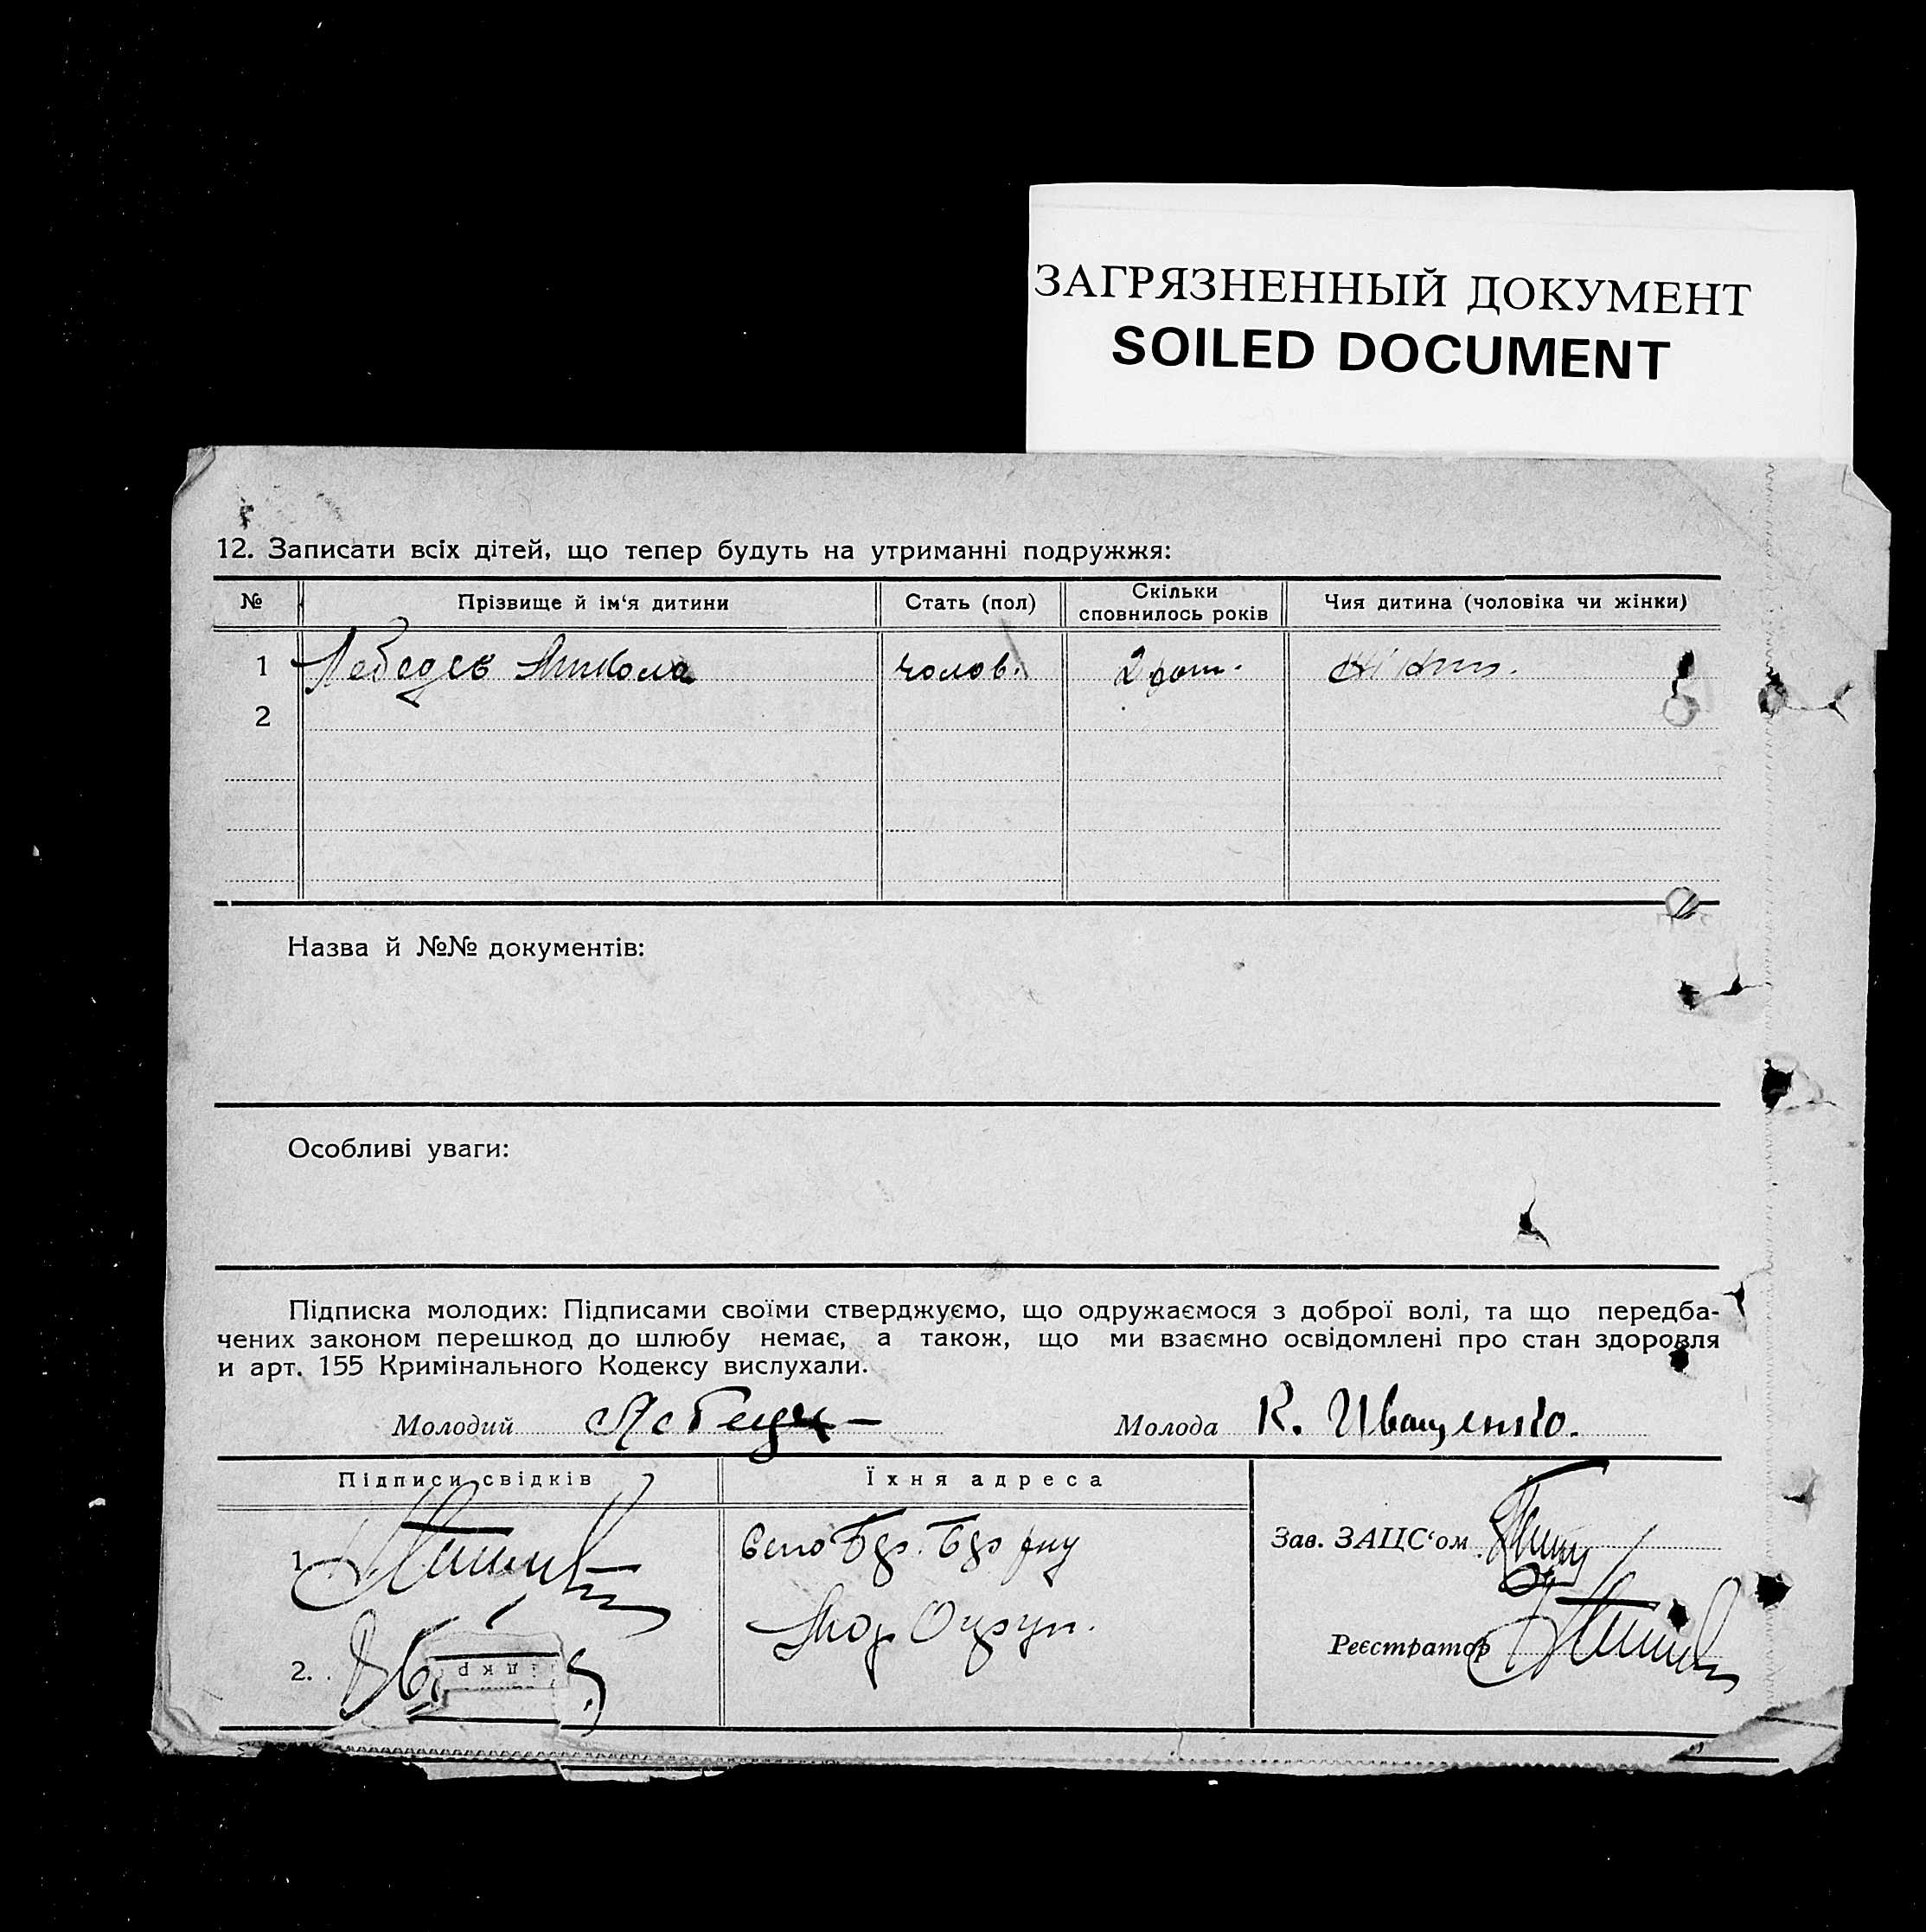 ЗАГРЯЗНЕННЫЙ ДОКУМЕНТ
SOILED DOCUMENT
12. Записати всіх дітей, що тепер будуть на утриманні подружжя:
№ Прізвище й ім‘я дитини Стать (пол) Скільки сповнилось років Чия дитина (чоловіка чи жінки)
1 Лебедєв Микола чолов. 2 роки.
2
Назва й №№ документів:
Особливі уваги:
Підписка молодих: Підписами своїми стверджуємо, що одружаємося з доброї волі, та що передба-
чених законом перешкод до шлюбу немає, а також, що ми взаємно освідомлені про стан здоровля
и арт. 155 Кримінального Кодексу вислухали.
Молодий Молода К. Иващенко.
Підписи свідків Їхня адреса
1 Село
Зав. ЗАЦС‘ом
2.
Реєстратор